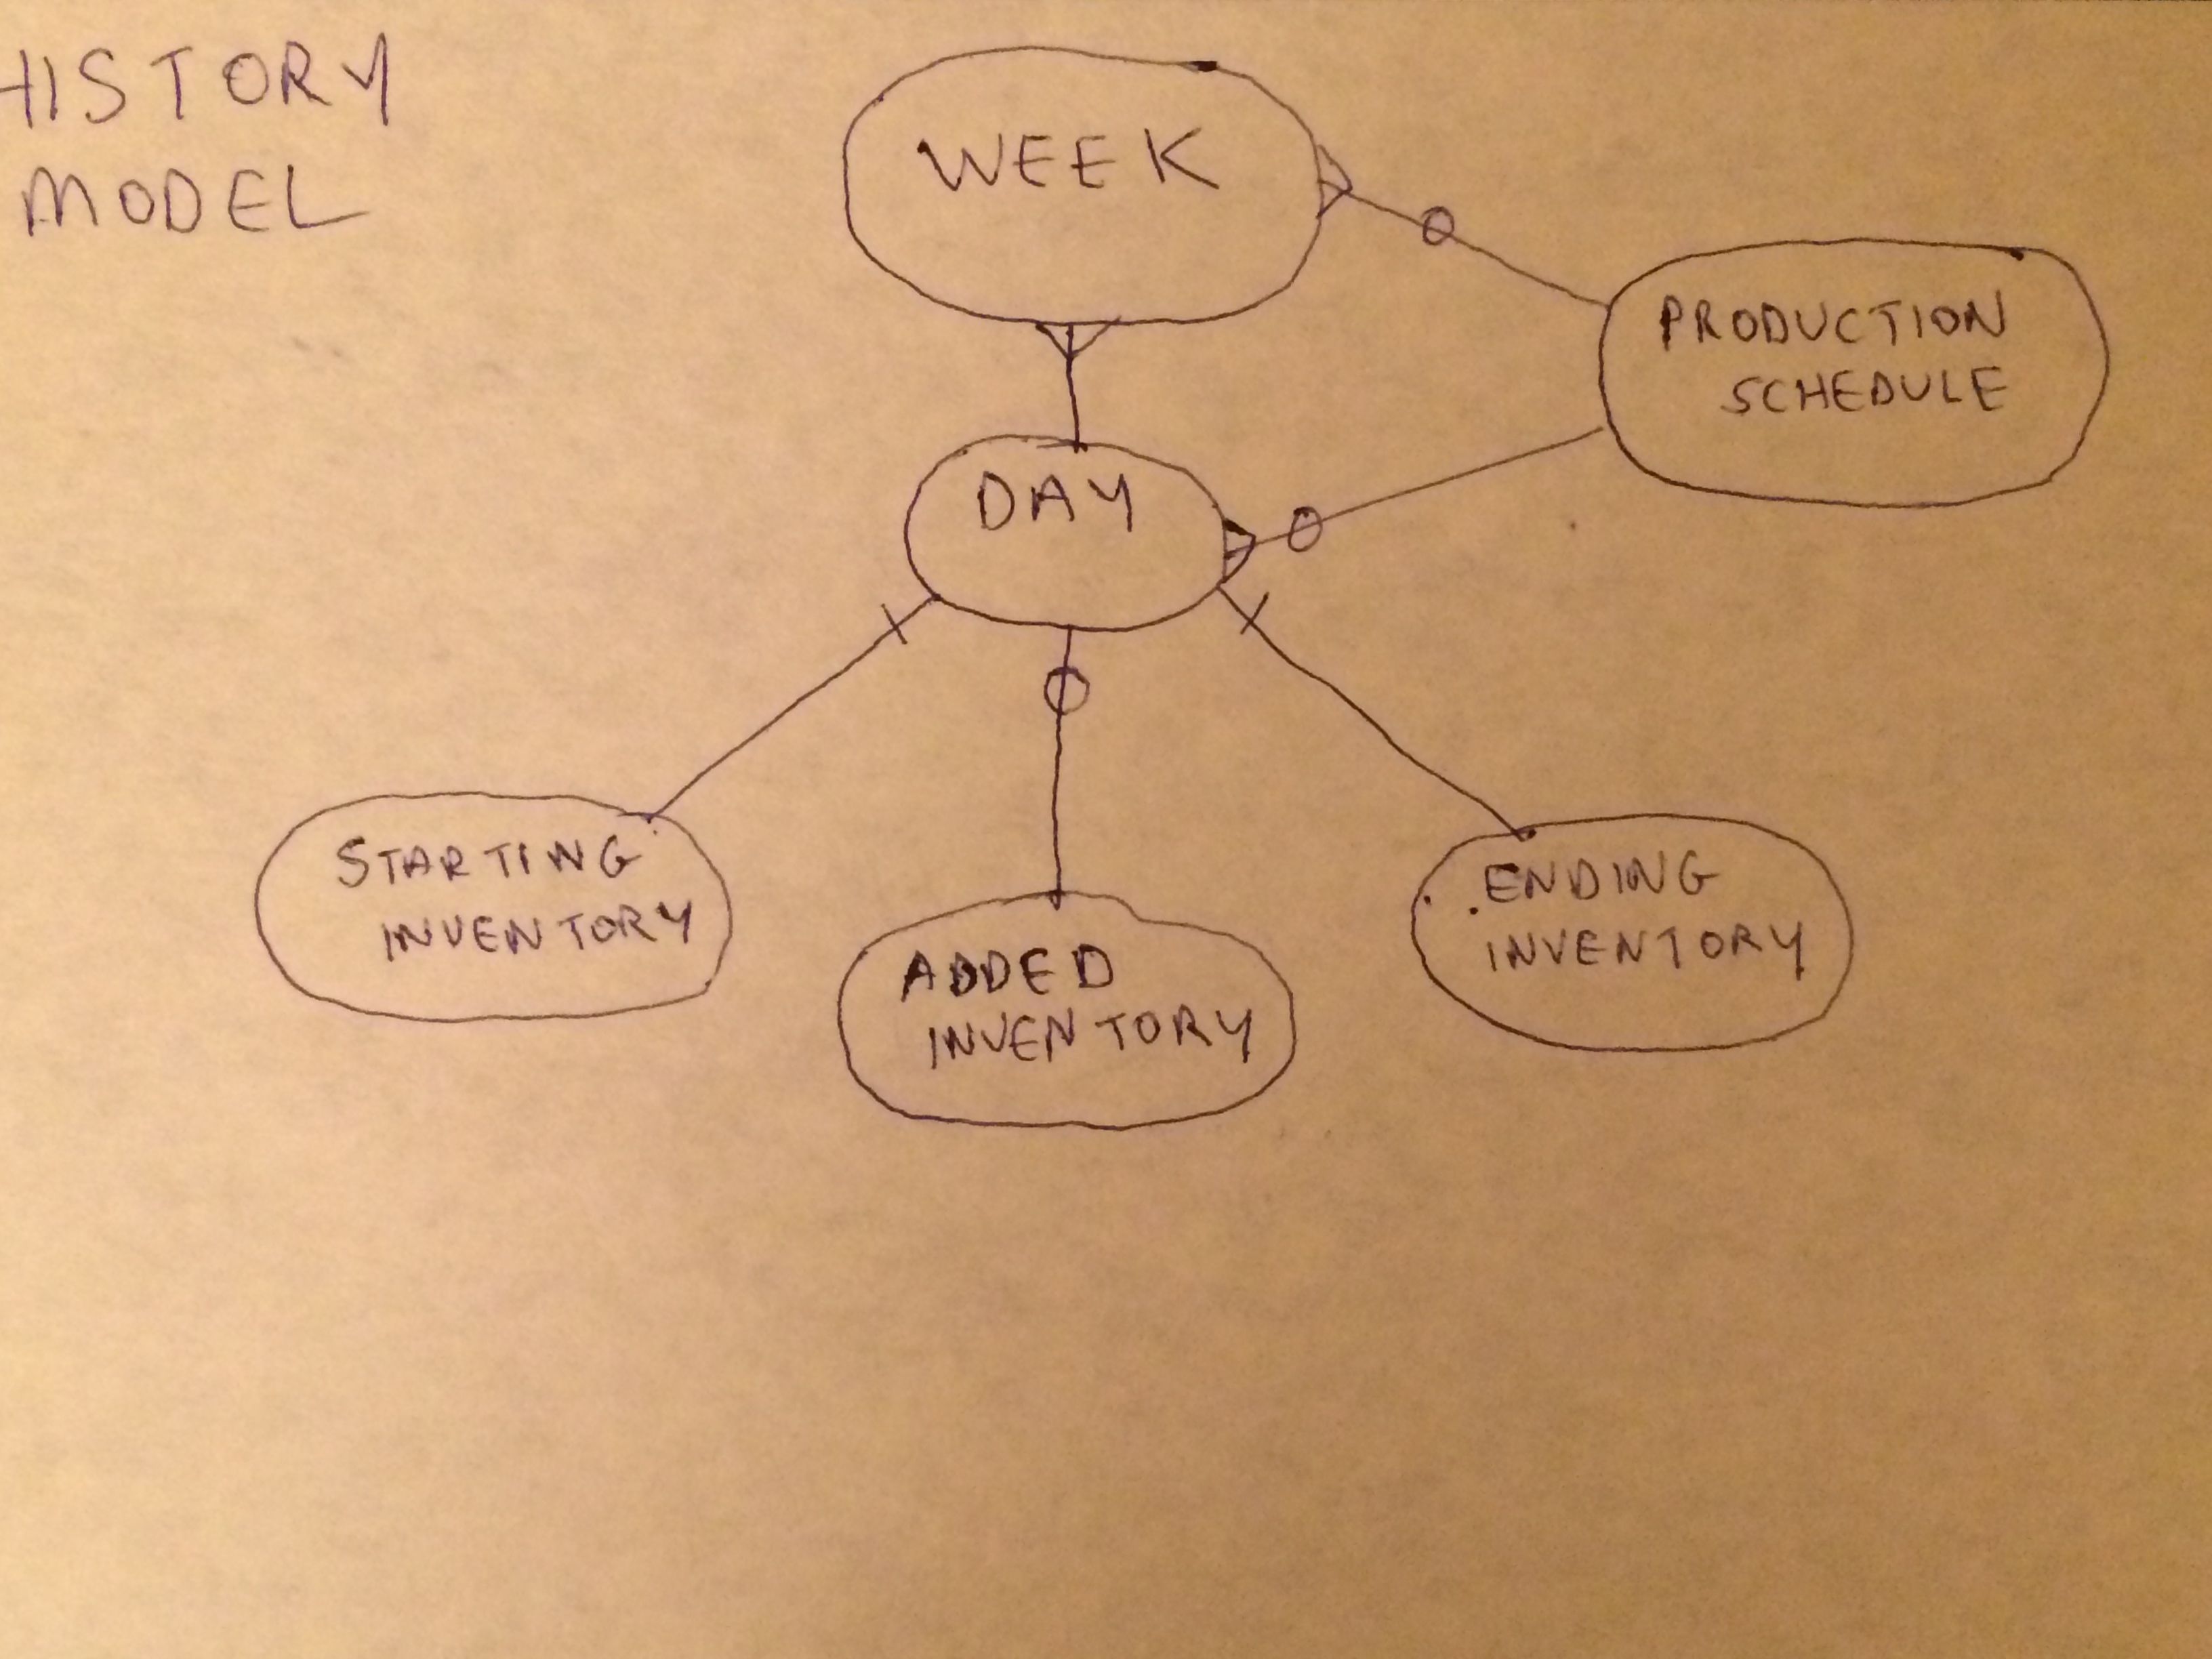 HISTORY
MODEL
WEEK
PRODUCTION
SCHEDULE
DAY
STARTING
INVENTORY
ADDED
INVENTORY
ENDING
INVENTORY